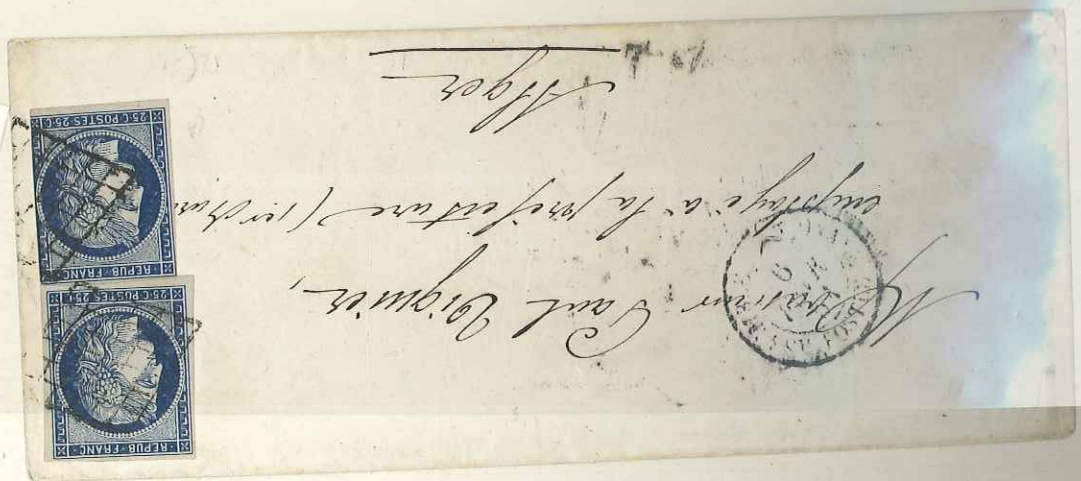 Monsieur Paul Viguier,
employé à la préfecture
Alger
REPUB·FRANC
25·C POSTES 25·C
REPUB·FRANC
25·C POSTES 25·C